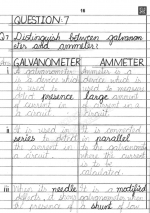 18
QUESTION:7
Q7 Distinguish between galvanom
eter and ammeter?
Ans GALVANOMETER AMMETER
i A galvanometer Ammeter is a
is a device which device which is
is used to used to measure
detect presence large amount
of current in of current in a
a circuit. circuit.
ii It is used in It is connected
series to detect in parallel
the current in to the galvanometer
a circuit. where the current
is to be
calculated.
iii When its needle It is a modified
deflects, it shows galvanometer when
a presence of a shunt of low